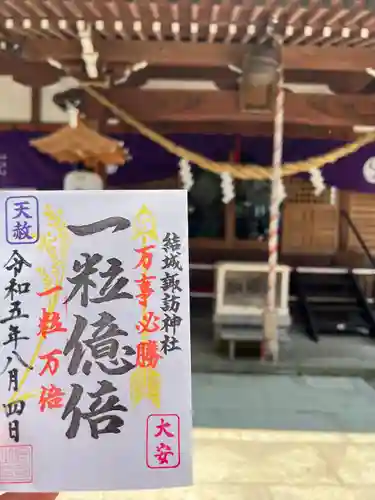 結城諏訪神社
万事必勝
一粒億倍
一粒万倍
大安
天赦
令和五年八月四日